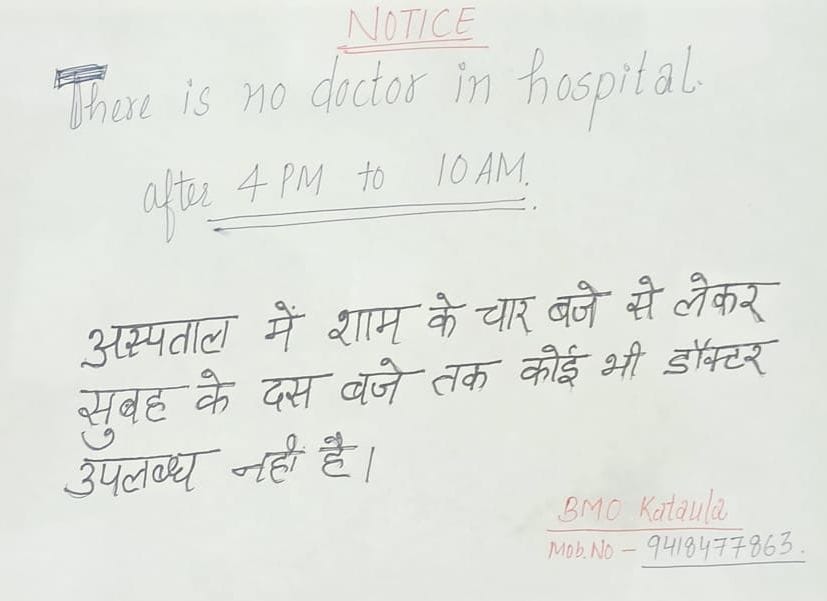 NOTICE
There is no doctor in hospital.
after 4 PM to 10 AM.
अस्पताल में शाम के चार बजे से लेकर
सुबह के दस बजे तक कोई भी डॉक्टर
उपलब्ध नहीं है।
BMO Kataula
Mob. No - 9418477863.